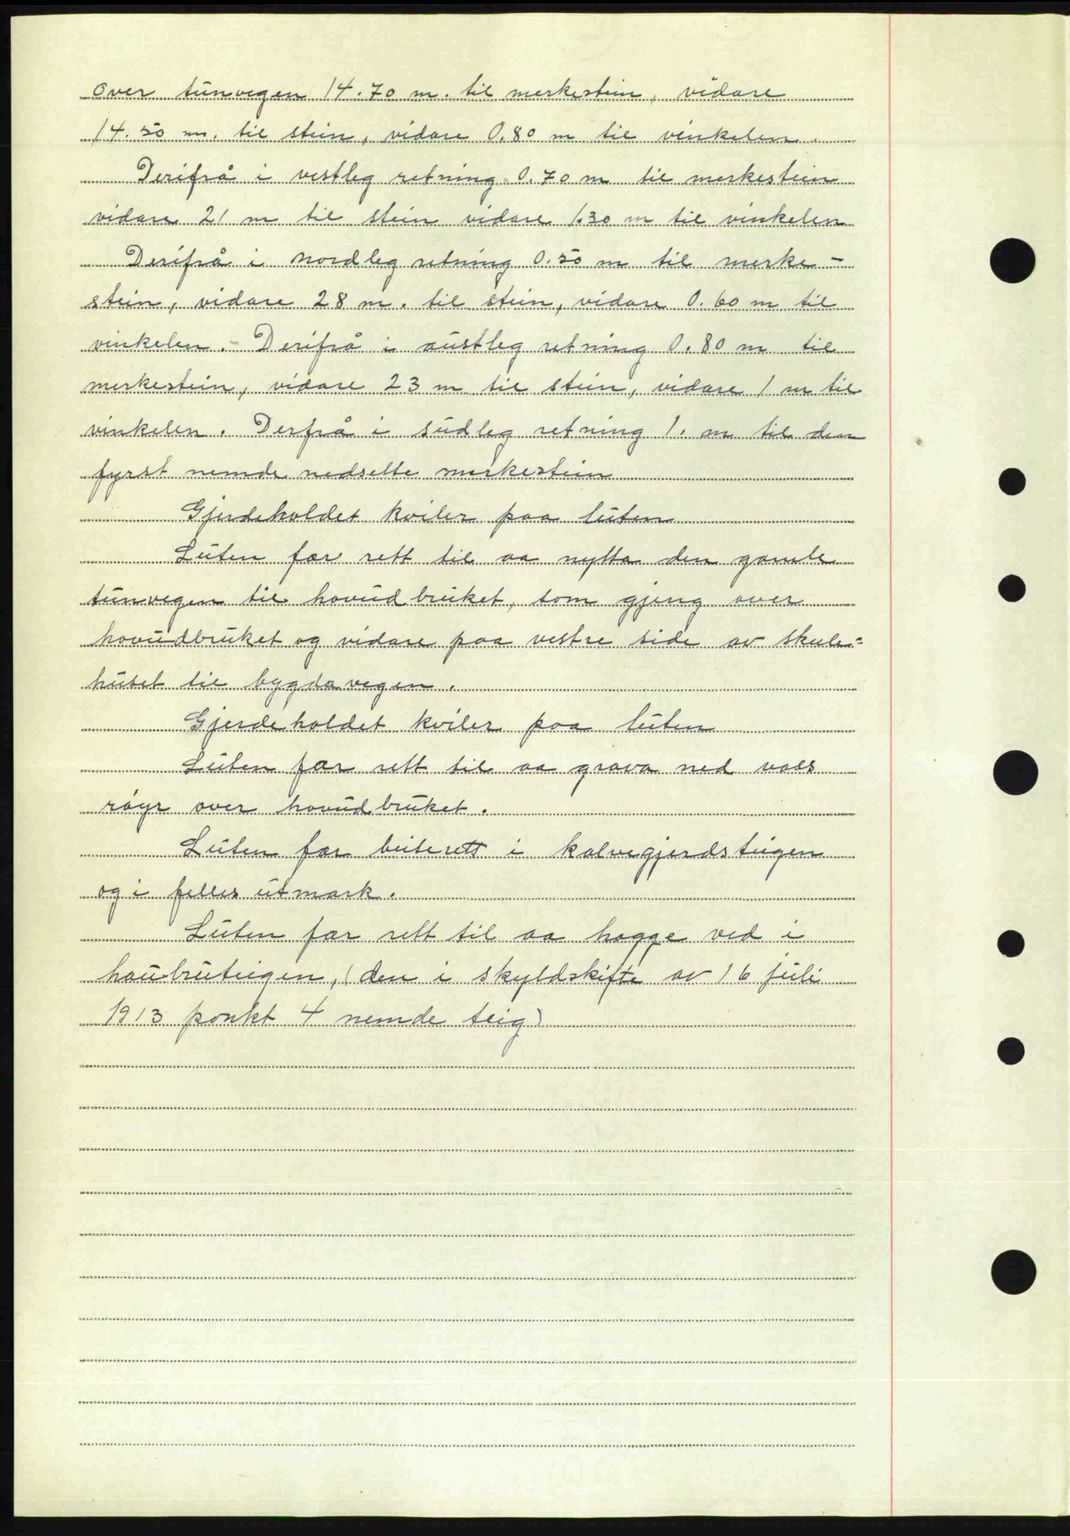 over tunvegen 14.70 m. til merkestein, vidare
14.50 m. til stein, vidare 0.80 m til vinkelen.
Derifrå i vestleg retning 0.70 m til merkestein
vidare 21 m til stein vidare 1.30 m til vinkelen
Derifrå i nordleg retning 0.50 m til merke-
stein, vidare 28 m. til stein, vidare 0.60 m til
vinkelen. - Derifrå i austleg retning 0.80 m til
merkestein, vidare 23 m til stein, vidare 1 m til
vinkelen. Derfrå i sudleg retning 1. m til den
fyrst nemde nedsette merkestein
Gjerdeholdet kviler paa luten
Luten fær rett til aa nytta den gamle
tunvegen til hovudbruket, som gjeng over
hovudbruket og vidare paa vestre side av skule=
huset til bygdavegen.
Gjerdeholdet kviler paa luten
Luten fær rett til aa grava ned vass
røyr over hovudbruket.
Luten fær beiterett i kalvegjerdsteigen
og i felles utmark.
Luten fær rett til aa hogge ved i
haubruteigen, (den i skyldskifte av 16 juli
1913 ponkt 4 nemde teig)